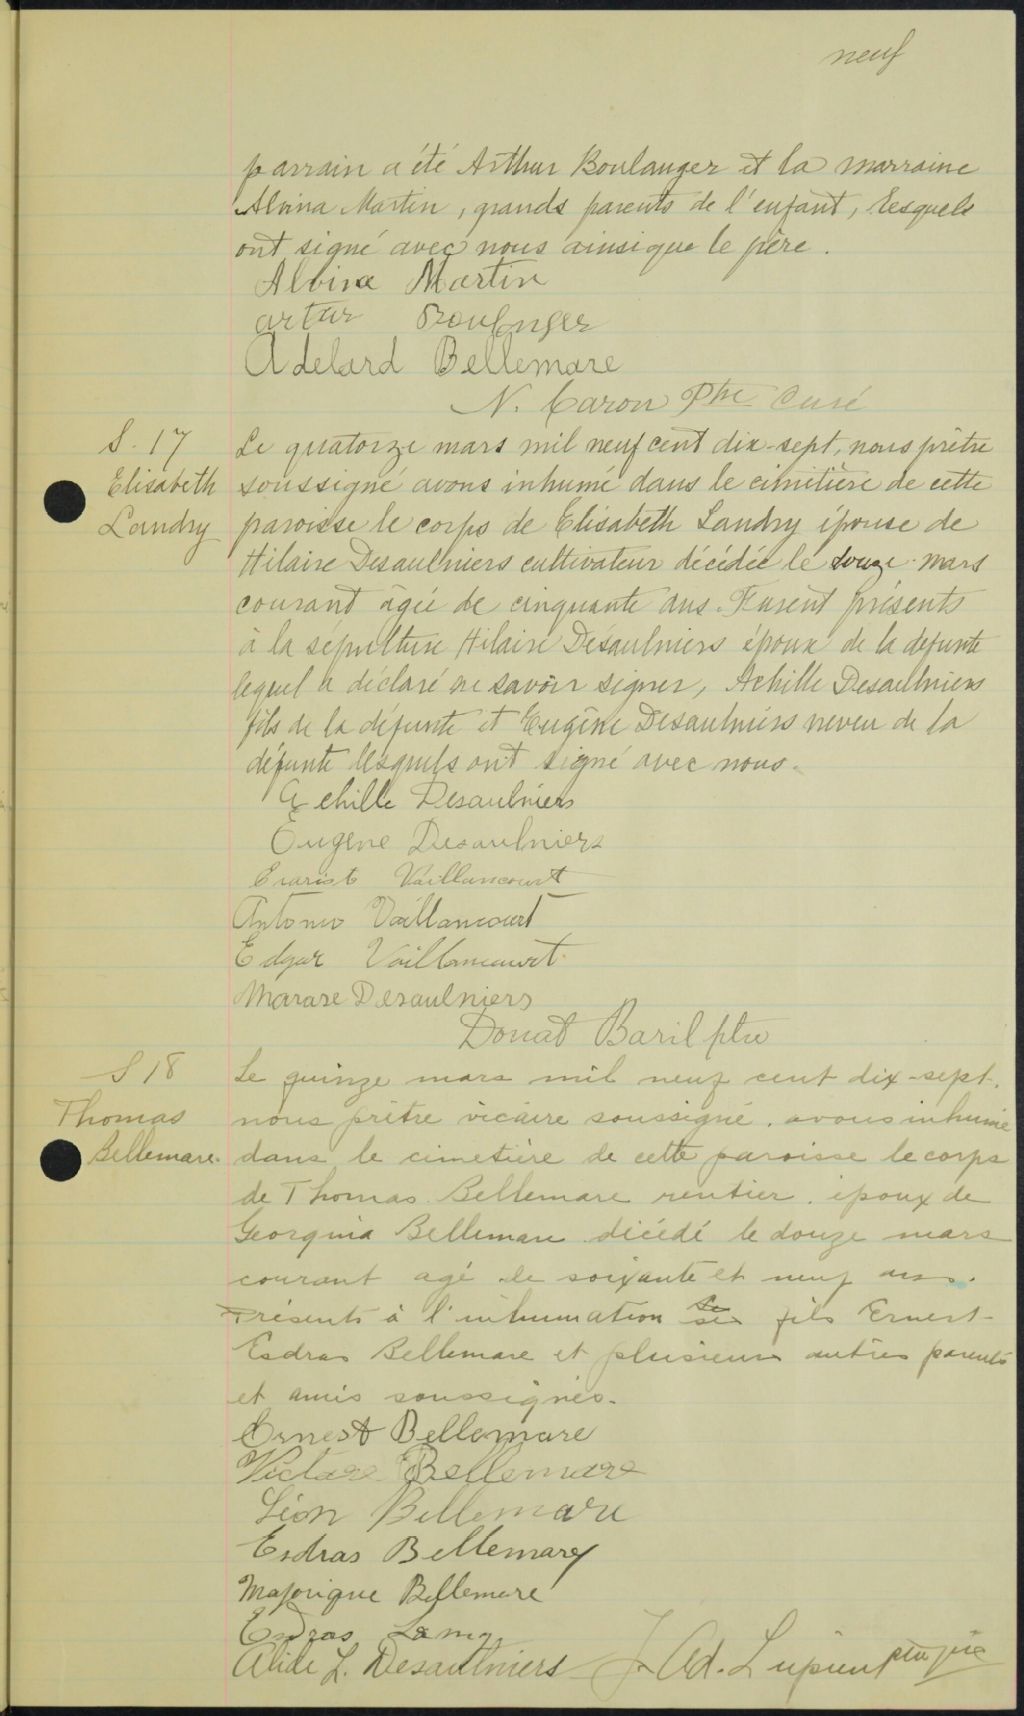 neuf
parrain a été Arthur Boulanger et la marraine
Alvina Martin, grands parents de l'enfant, lesquels
ont signé avec nous ainsi que le père.
Alvina Martin
artur Boulnger
Adelard Bellemare
N. Caron Ptre Curé
S. 17
Elisabeth
Landry
Le quatorze mars mil neuf cent dix-sept, nous prêtre
soussigné avons inhumé dans le cimitière de cette
paroisse le corps de Elisabeth Landry épouse de
Hilaire Desaulniers cultivateur décédée le douze mars
courant âgée de cinquante ans. Furent présents
à la sépulture Hilaire Desaulniers époux de la defunte
lequel a déclaré ne savoir signer, Achille Desaulniers
fils de la défunte et Eugène Desaulniers neveu de la
défunte lesquels ont signé avec nous.
Achille Desaulniers
Eugene Desaulniers
Evariste Vaillancourt
Antonio Vaillancourt
Edgar Vaillancourt
Desaulniers
Donat Baril ptre
S 18
Thomas
Bellemare.
Le quinze mars mil neuf cent dix-sept,
nous prêtre vicaire soussigné, avons inhumé
dans le cimetière de cette paroisse le corps
de Thomas Bellemare rentier, époux de
Georgina Bellemare décédé le douze mars
courant agé de soixante et neuf ans.
Présents à l'inhumation fils Ernest
Esdras Bellemare et plusieurs autres parents
et amis soussignés.
Ernest Bellemare
Victore Bellemare
Léon Bellemare
Esdras Bellemare
Majorique Bellemare
Esdras Lamy
Alide L. Desaulniers
J. Ad. Lupien ptre vic